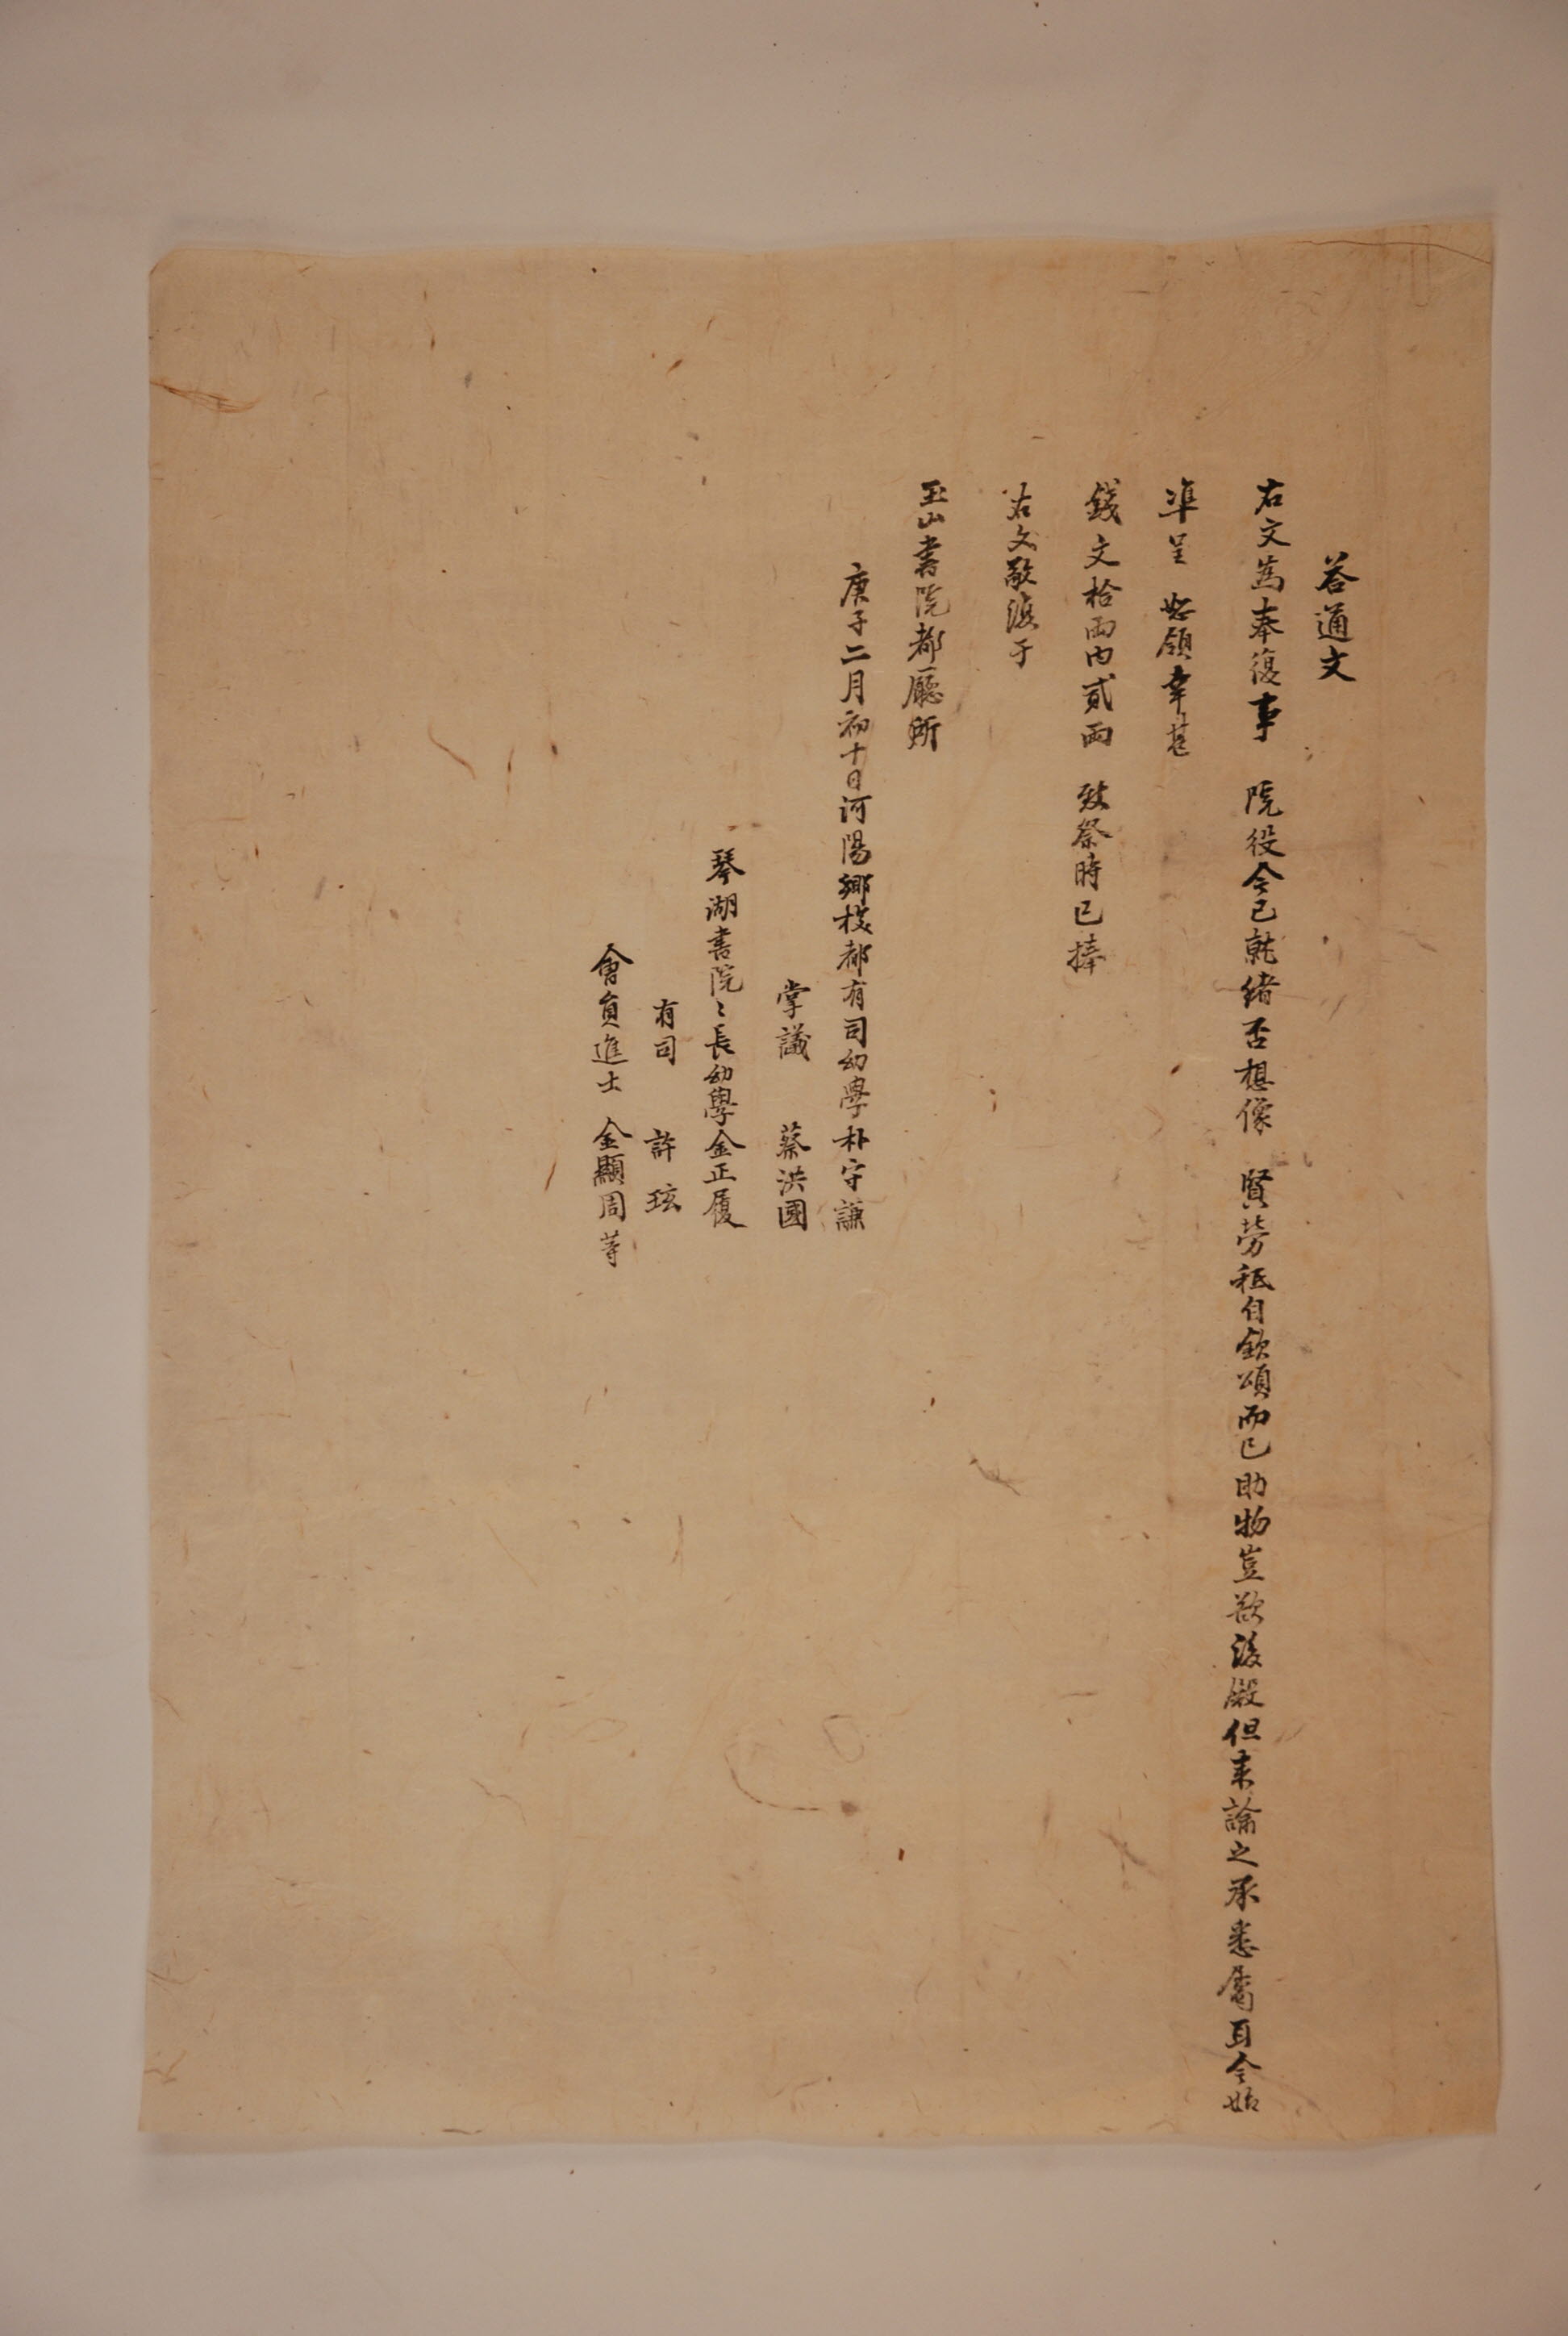 答通文
右文爲奉復事 院役今已就緖否想像 賢勞秪自欽頌而已助物豈欲後殿但來諭之承悉屬耳今始
準呈 恕領幸甚
錢文拾兩內貳兩 致祭時已捧
右文敬復于
玉山書院都廳所
庚子二月初十日河陽鄕校都有司幼學朴守謙
掌議 蔡洪國
琴湖書院〻長幼學金正履
有司 許玹
會員進士 金顯周等